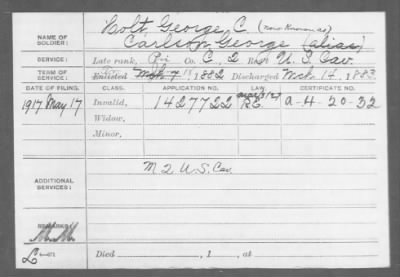 NAME OF SOLDIER: Colt, George, C. (now known as)
Carlson, George (alias)
SERVICE: Late rank, Pri Co. C, 2 Reg't U. S. Cav.
TERM OF SERVICE: Enlisted 1882 Discharged Mch. 14, 1883
DATE OF FILING. CLASS. APPLICATION NO. LAW. CERTIFICATE NO.
1917 May 17 Invalid, 1427722 A-4-20-32
Widow,
Minor,
ADDITIONAL SERVICES: M 2 U.S. Cav.
REMARKS:
Died , 1 , at